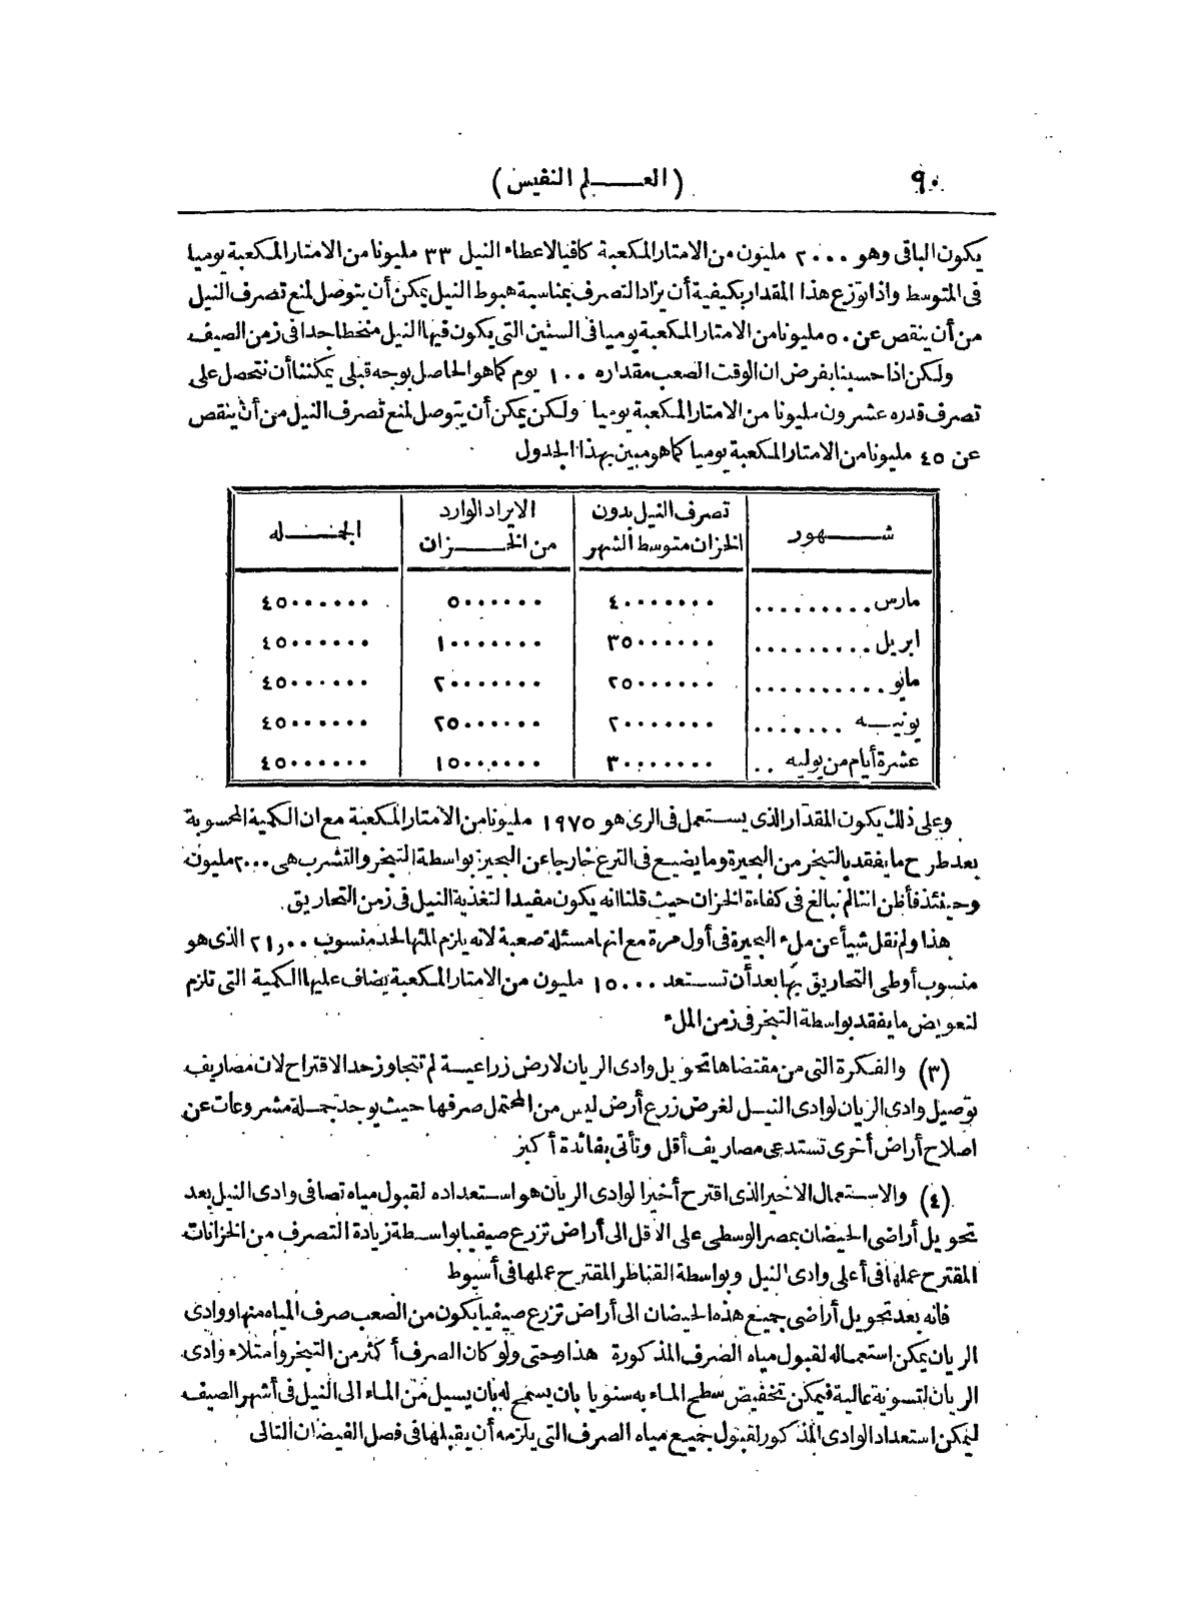 ٩٠ (العـــلم النفيس)
يكون الباقى وهو ٢٠٠٠ مليون من الامتار المكعبة كافيا لاعطاء النيل ٣٣ مليونا من الامتار المكعبة يوميا
فى المتوسط واذا توزع هذا المقدار بكيفية أن يزاد التصرف بمناسبة هبوط النيل يمكن أن يتوصل لمنع تصرف النيل
من أن ينقص عن ٥٠ مليونا من الامتار المكعبة يوميا فى السنين التى يكون فيها النيل منحطا جدا فى زمن الصيف
ولكن اذا حسبنا بفرض ان الوقت الصعب مقداره ١٠٠ يوم كما هو الحاصل بوجه قبلى يمكننا أن نتحصل على
تصرف قدره عشرون مليونا من الامتار المكعبة يوميا ولكن يمكن أن يتوصل لمنع تصرف النيل من أن ينقص
عن ٤٥ مليونا من الامتار المكعبة يوميا كما هو مبين بهذا الجدول
شـــهور | تصرف النيل بدون الخزان متوسط الشهر | الايراد الوارد من الخـــزان | الجمــله
مارس.......... | ٤٠٠٠٠٠٠٠ | ٥٠٠٠٠٠٠ | ٤٥٠٠٠٠٠٠
ابريل.......... | ٣٥٠٠٠٠٠٠ | ١٠٠٠٠٠٠٠ | ٤٥٠٠٠٠٠٠
مايو........... | ٢٥٠٠٠٠٠٠ | ٢٠٠٠٠٠٠٠ | ٤٥٠٠٠٠٠٠
يونيــه ....... | ٢٠٠٠٠٠٠٠ | ٢٥٠٠٠٠٠٠ | ٤٥٠٠٠٠٠٠
عشرة أيام من يوليه .. | ٣٠٠٠٠٠٠٠ | ١٥٠٠٠٠٠٠ | ٤٥٠٠٠٠٠٠
وعلى ذلك يكون المقدار الذى يستعمل فى الرى هو ١٩٧٥ مليونا من الامتار المكعبة مع ان الكمية المحسوبة
بعد طرح ما يفقد بالتبخر من البحيرة وما يضيع فى الترع خارجا عن البحيرة بواسطة التبخر والتشرب هى ٢٠٠٠ مليون
وحينئذ فأظن اننا لم نبالغ فى كفاءة الخزان حيث قلنا انه يكون مفيدا لتغذية النيل فى زمن التحاريق
هذا ولم نقل شيأ عن ملء البحيرة فى أول مرة مع انها مسئلة صعبة لانه يلزم لملئها لحد منسوب ٢١,٠٠ الذى هو
منسوب أوطى التحاريق بها بعد أن تستعد ١٥٠٠٠ مليون من الامتار المكعبة يضاف عليها الكمية التى تلزم
لتعويض ما يفقد بواسطة التبخر فى زمن الملء
(٣) والفكرة التى من مقتضاها تحويل وادى الريان لارض زراعية لم تتجاوز حد الاقتراح لان مصاريف
توصيل وادى الريان لوادى النيل لغرض زرع أرض ليس من المحتمل صرفها حيث يوجد جملة مشروعات عن
اصلاح أراض أخرى تستدعى مصاريف أقل وتأتى بفائدة أكبر
(٤) والاستعمال الاخير الذى اقترح أخيرا لوادى الريان هو استعداده لقبول مياه تصافى وادى النيل بعد
تحويل أراضى الحيضان بمصر الوسطى على الاقل الى أراض تزرع صيفيا بواسطة زيادة التصرف من الخزانات
المقترح عملها فى أعلى وادى النيل وبواسطة القناطر المقترح عملها فى أسيوط
فانه بعد تحويل أراضى جميع هذه الحيضان الى أراض تزرع صيفيا يكون من الصعب صرف المياه منها ووادى
الريان يمكن استعماله لقبول مياه الصرف المذكورة هذا وحتى ولو كان الصرف أكثر من التبخر وأمتلاء وادى
الريان لتسوية عالية فيمكن تخفيض سطح الماء به سنويا بان يسمح له بان يسيل من الماء الى النيل فى أشهر الصيف
ليمكن استعداد الوادى المذكور لقبول جميع مياه الصرف التى يلزمه أن يقبلها فى فصل الفيضان التالى